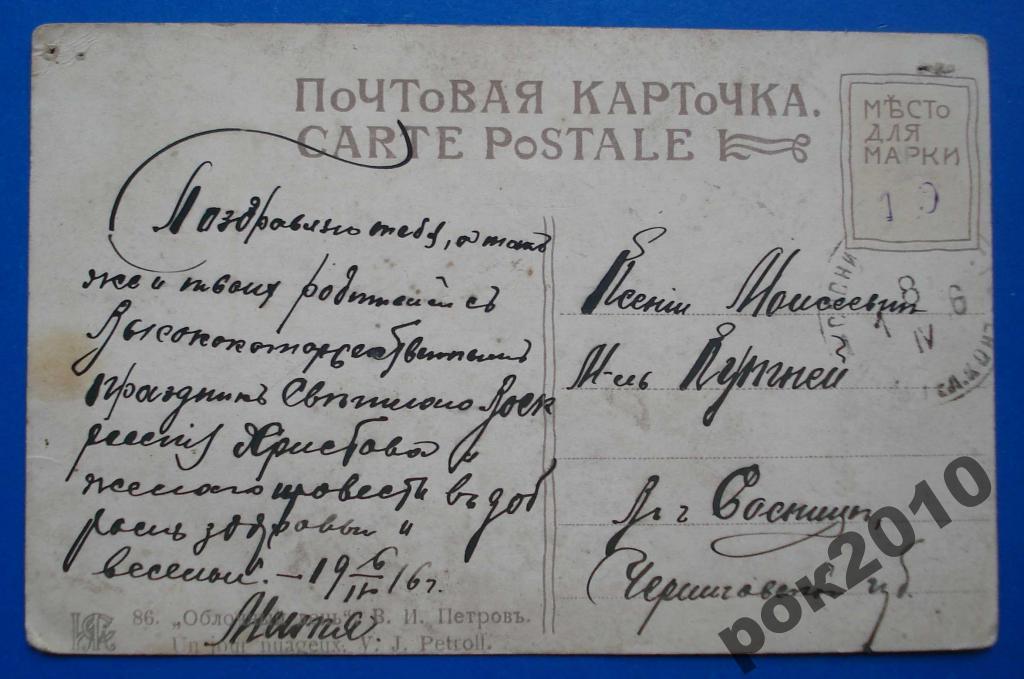 ПОЧТОВАЯ КАРТОЧКА.
CARTE POSTALE
МѢСТО
ДЛЯ
МАРКИ
19
Поздравляю тебя, а так
же и твоих съ
Высокоторжественнымъ
праздникъ Свѣтлого Воск
ресенія Христова и
желаю провести въ доб
ромъ здоровьи и
весельи. – 19 6/IV 16 г.
Ксеніи Моисеевнѣ
М-ль
Въ г Сосницы,
Черниговской губ
8 IV 6
86. „Облачный день“ В. И. Петровъ.
Un jour nuageux. V. J. Petroff.
рок2010